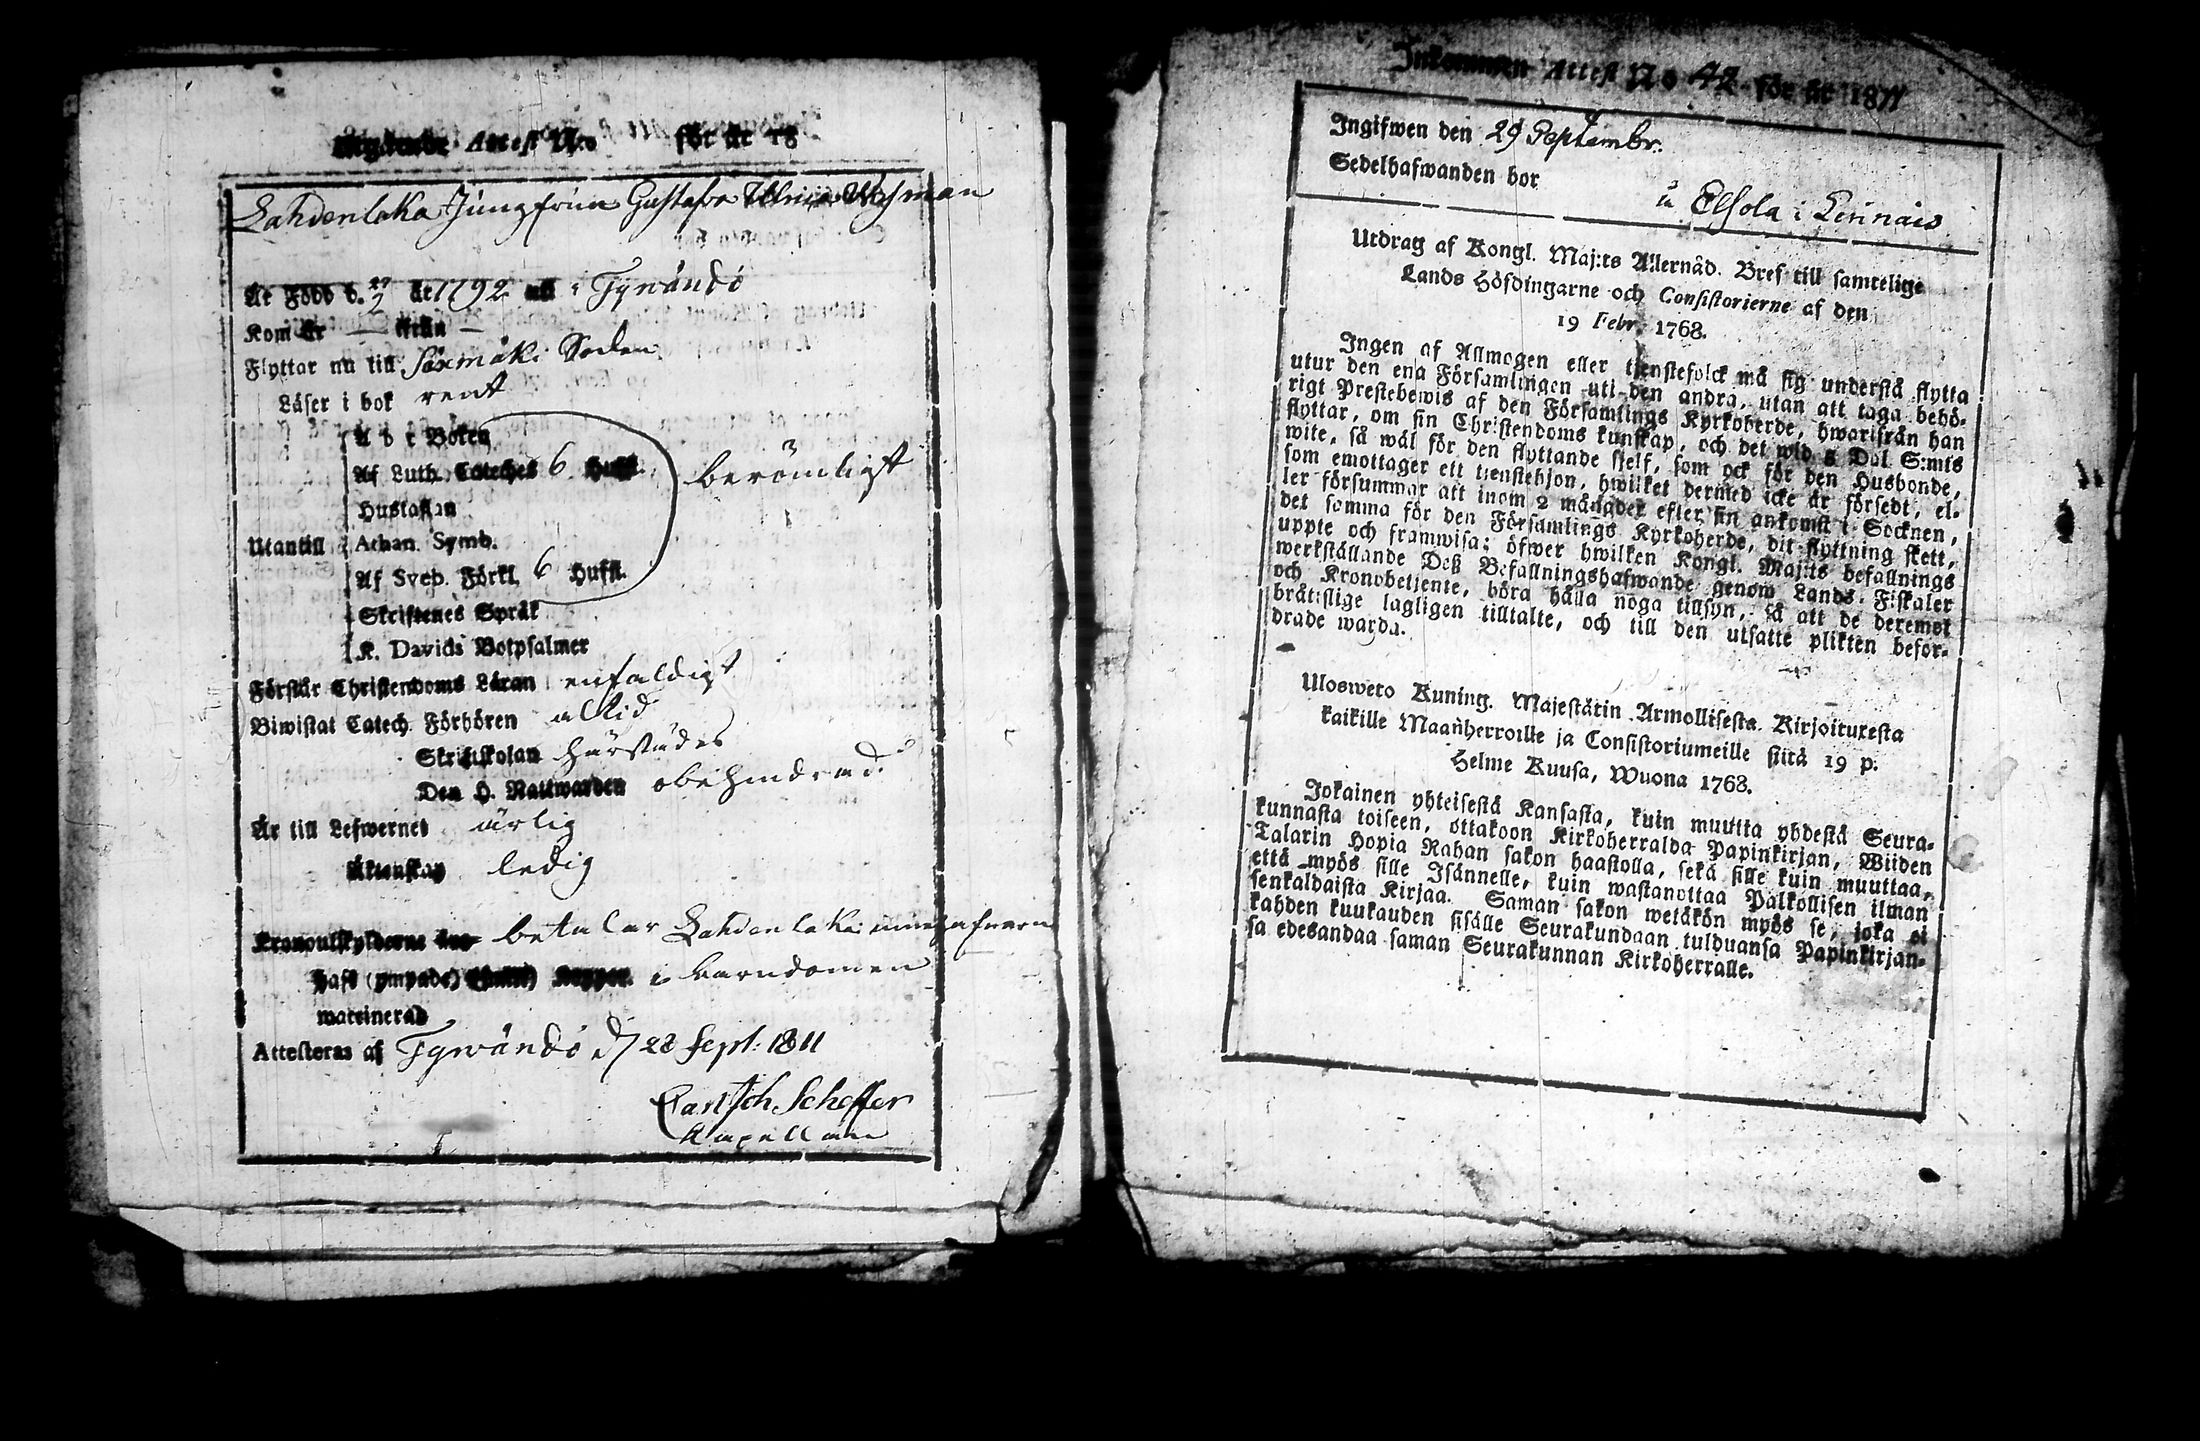 Utgående Attest N:o för år 18
Lahdenlaka Jungfrun Gustafva Ulrica Wisman
Är Född d. 27/2 år 1792 i Tyrwändö
Kom År — ifrån —
Flyttar nu till Säxmäki Socken
Läser i bok rent
A b c Boken
Af Luth. Cateches 6 Hufst. berömligt
Hustaflan
Utantill Athan. Symb.
Af Sveb. Förkl. 6 Hufst.
Skriftenes Språk
K. Davids Botpsalmer
Förstår Christendoms Läran enfaldigt
Biwistat Catech. Förhören altid
Skriftskolan härstädes
Den H. Nattwarden obehindrad
Är till Lefwernet ärlig
Äktenskap ledig
Kronoutskylderne betalar Lahdenlaka innehafvaren
Haft (ympade) Koppor i barndomen
Attesteras af Tyrwändö d 28 Sept: 1811
Carl Joh Scheffer
Kapellan
Inkommen Attest No 42 för år 1811
Ingifwen den 29 Septembr.
Sedelhafwanden bor
å Elsola i
Utdrag af Kongl. Maj:ts Allernåd. Bref till samtelige
Lands Höfdingarne och Consistorierne af den
19 Febr. 1768.
Ingen af Allmogen eller tjenstefolck må sig understå flytta
utur den ena Församlingen uti den andra, utan att taga behö-
rigt Prestebewis af den Församlings Kyrkoherde, hwarifrån han
flyttar, om sin Christendoms kunskap, och det wid 5 Dal. S:mts
wite, så wäl för den flyttande sjelf, som ock för den Husbonde,
som emottager ett tjenstehjon, hwilket dermed icke är försedt, el-
ler försummar att inom 2 månader efter sin ankomst i Socknen,
det samma för den Församlings Kyrkoherde, dit flyttning skett,
uppte och framwisa; öfwer hwilken Kongl. Maj:ts befallnings
werkställande Deß Befallningshafwande genom Lands Fiskaler
och Kronobetjente, böra hålla noga tillsyn, så att de deremot
bråtslige lagligen tilltalte, och till den utsatte plikten befor-
drade warda.
Uloswето Kuning. Majestätin Armollisesta Kirjoituxesta
kaikille Maanherroille ja Consistoriumeille siitä 19 p.
Helme Kuusa, Wuona 1768.
Jokainen yhteisestä Kansasta, kuin muutta yhdestä Seura-
kunnasta toiseen, ottakoon Kirkoherralda Papinkirjan, Wiiden
Talarin Hopia Rahan sakon haastolla, sekä sille kuin muuttaa,
että myös sille Isännelle, kuin wastanottaa Palkollisen ilman
senkaldaista Kirjaa. Saman sakon wetäkön myös se, joka ei
kahden kuukauden sisälle Seurakundaan tulduansa Papinkirjan-
sa edesandaa saman Seurakunnan Kirkoherralle.